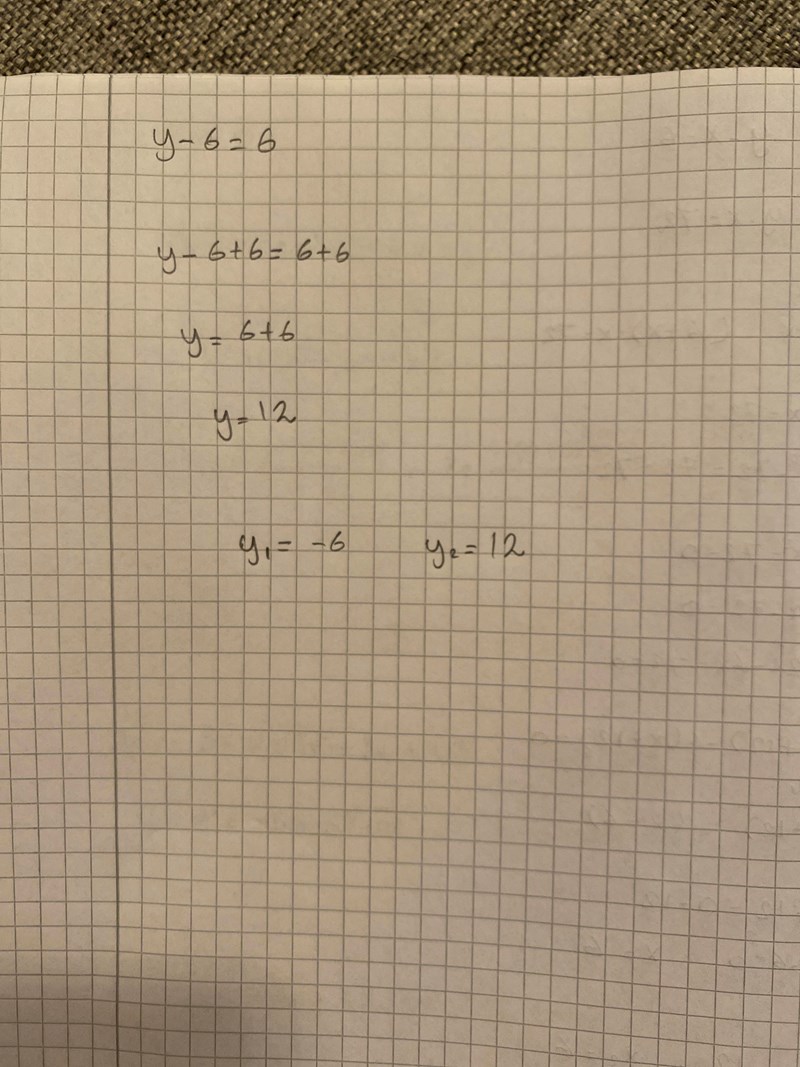 y - 6 = 6
y - 6 + 6 = 6 + 6
y = 6 + 6
y = 12
y₁ = -6 y₂ = 12